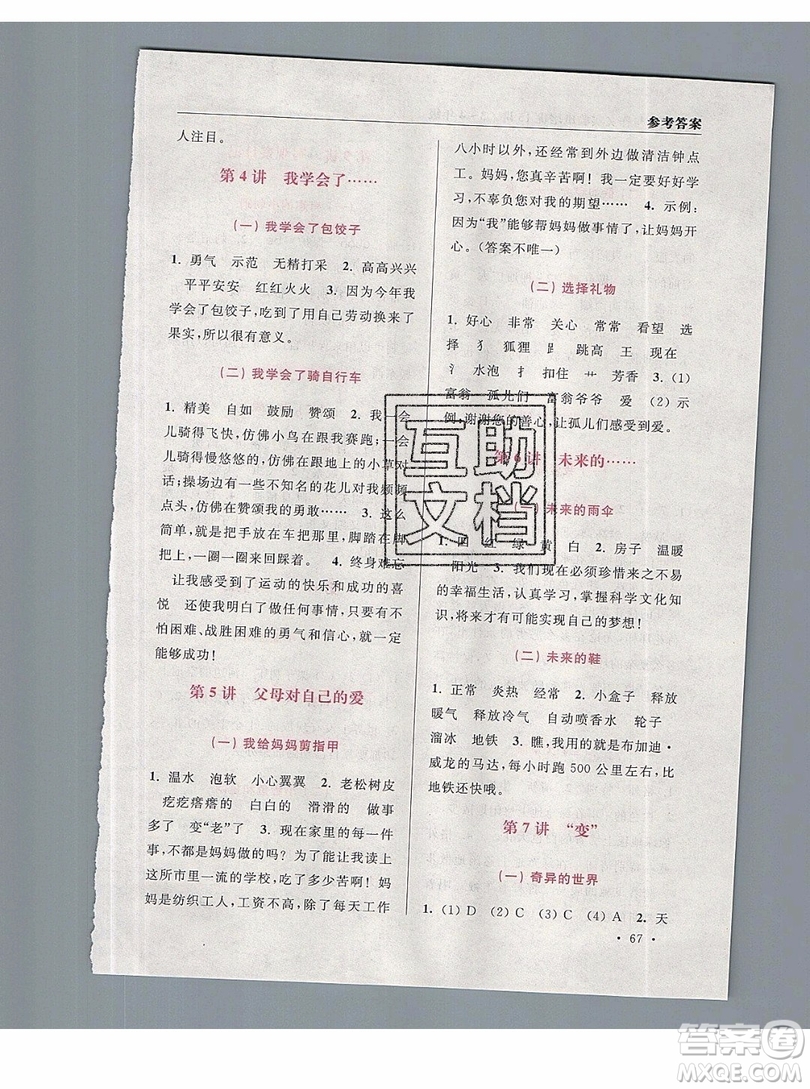 参考答案
人注目。
第 4 讲 我学会了……
(一) 我学会了包饺子
1. 勇气 示范 无精打采 2. 高高兴兴
平平安安 红红火火 3. 因为今年我
学会了包饺子,吃到了用自己劳动换来了
果实,所以很有意义。
(二) 我学会了骑自行车
1. 精美 自如 鼓励 赞颂 2. 我一会
儿骑得飞快,仿佛小鸟在跟我赛跑;一会
儿骑得慢悠悠的,仿佛大树在跟我亲切对
话;操场边五颜六色的花儿对我频频
点头,仿佛在赞颂我的勇敢…… 3. 这么
简单,就是把手放在车把上,脚踏在脚踏
板上,一圈一圈来回踩着。 4. 终身难忘
让我感受到了运动的快乐和成功的喜
悦 还使我明白了做任何事情,只要有不
怕困难、战胜困难的勇气和信心,就一定
能够成功!
第 5 讲 父母对自己的爱
(一) 我给妈妈剪指甲
1. 温水 泡软 小心翼翼 2. 老松树皮
疙疙瘩瘩的 白白的 滑滑的 做事
多了 变“老”了 3. 现在家里的哪一件
事,不是妈妈做的吗?为了能让我读上
这所市里一流的学校,吃了多少苦啊!妈
妈是纺织工人,工资不高,除了每天工作
八小时以外,还经常到外边做清洁钟点
工。妈妈,您真辛苦啊!我一定要好好学
习,不辜负您对我的期望…… 4. 示例:
因为“我”能够帮妈妈做事情了,让妈妈开
心。(答案不唯一)
(二) 选择礼物
1. 好心 非常 关心 常常 看望 选
择 犭 狐狸 𧾷 跳高 王 现在
氵 水泡 扌 扣住 艹 芳香 3. (1)
富翁 孤儿们 富翁爷爷 爱 (2) 示
例,谢谢您的善心,让孤儿们感受到爱。
第 6 讲 未来的……
未来的雨伞
红 绿 黄 白 2. 房子 温暖
阳光 3. 我们现在必须珍惜来之不易
的幸福生活,认真学习,掌握科学文化知
识,将来才有可能实现自己的梦想!
(二) 未来的鞋
1. 正常 炎热 经常 2. 小盒子 释放
暖气 释放冷气 自动喷香水 轮子
溜冰 地铁 3. 瞧,我用的是布加迪·
威龙的马达,每小时跑 500 公里左右,比
地铁还快哦。
第 7 讲 “变”
(一) 奇异的世界
1. (1) D (2) C (3) C (4) A 2. 天
· 67 ·
互助
文档
答案圈
MXQE.COM